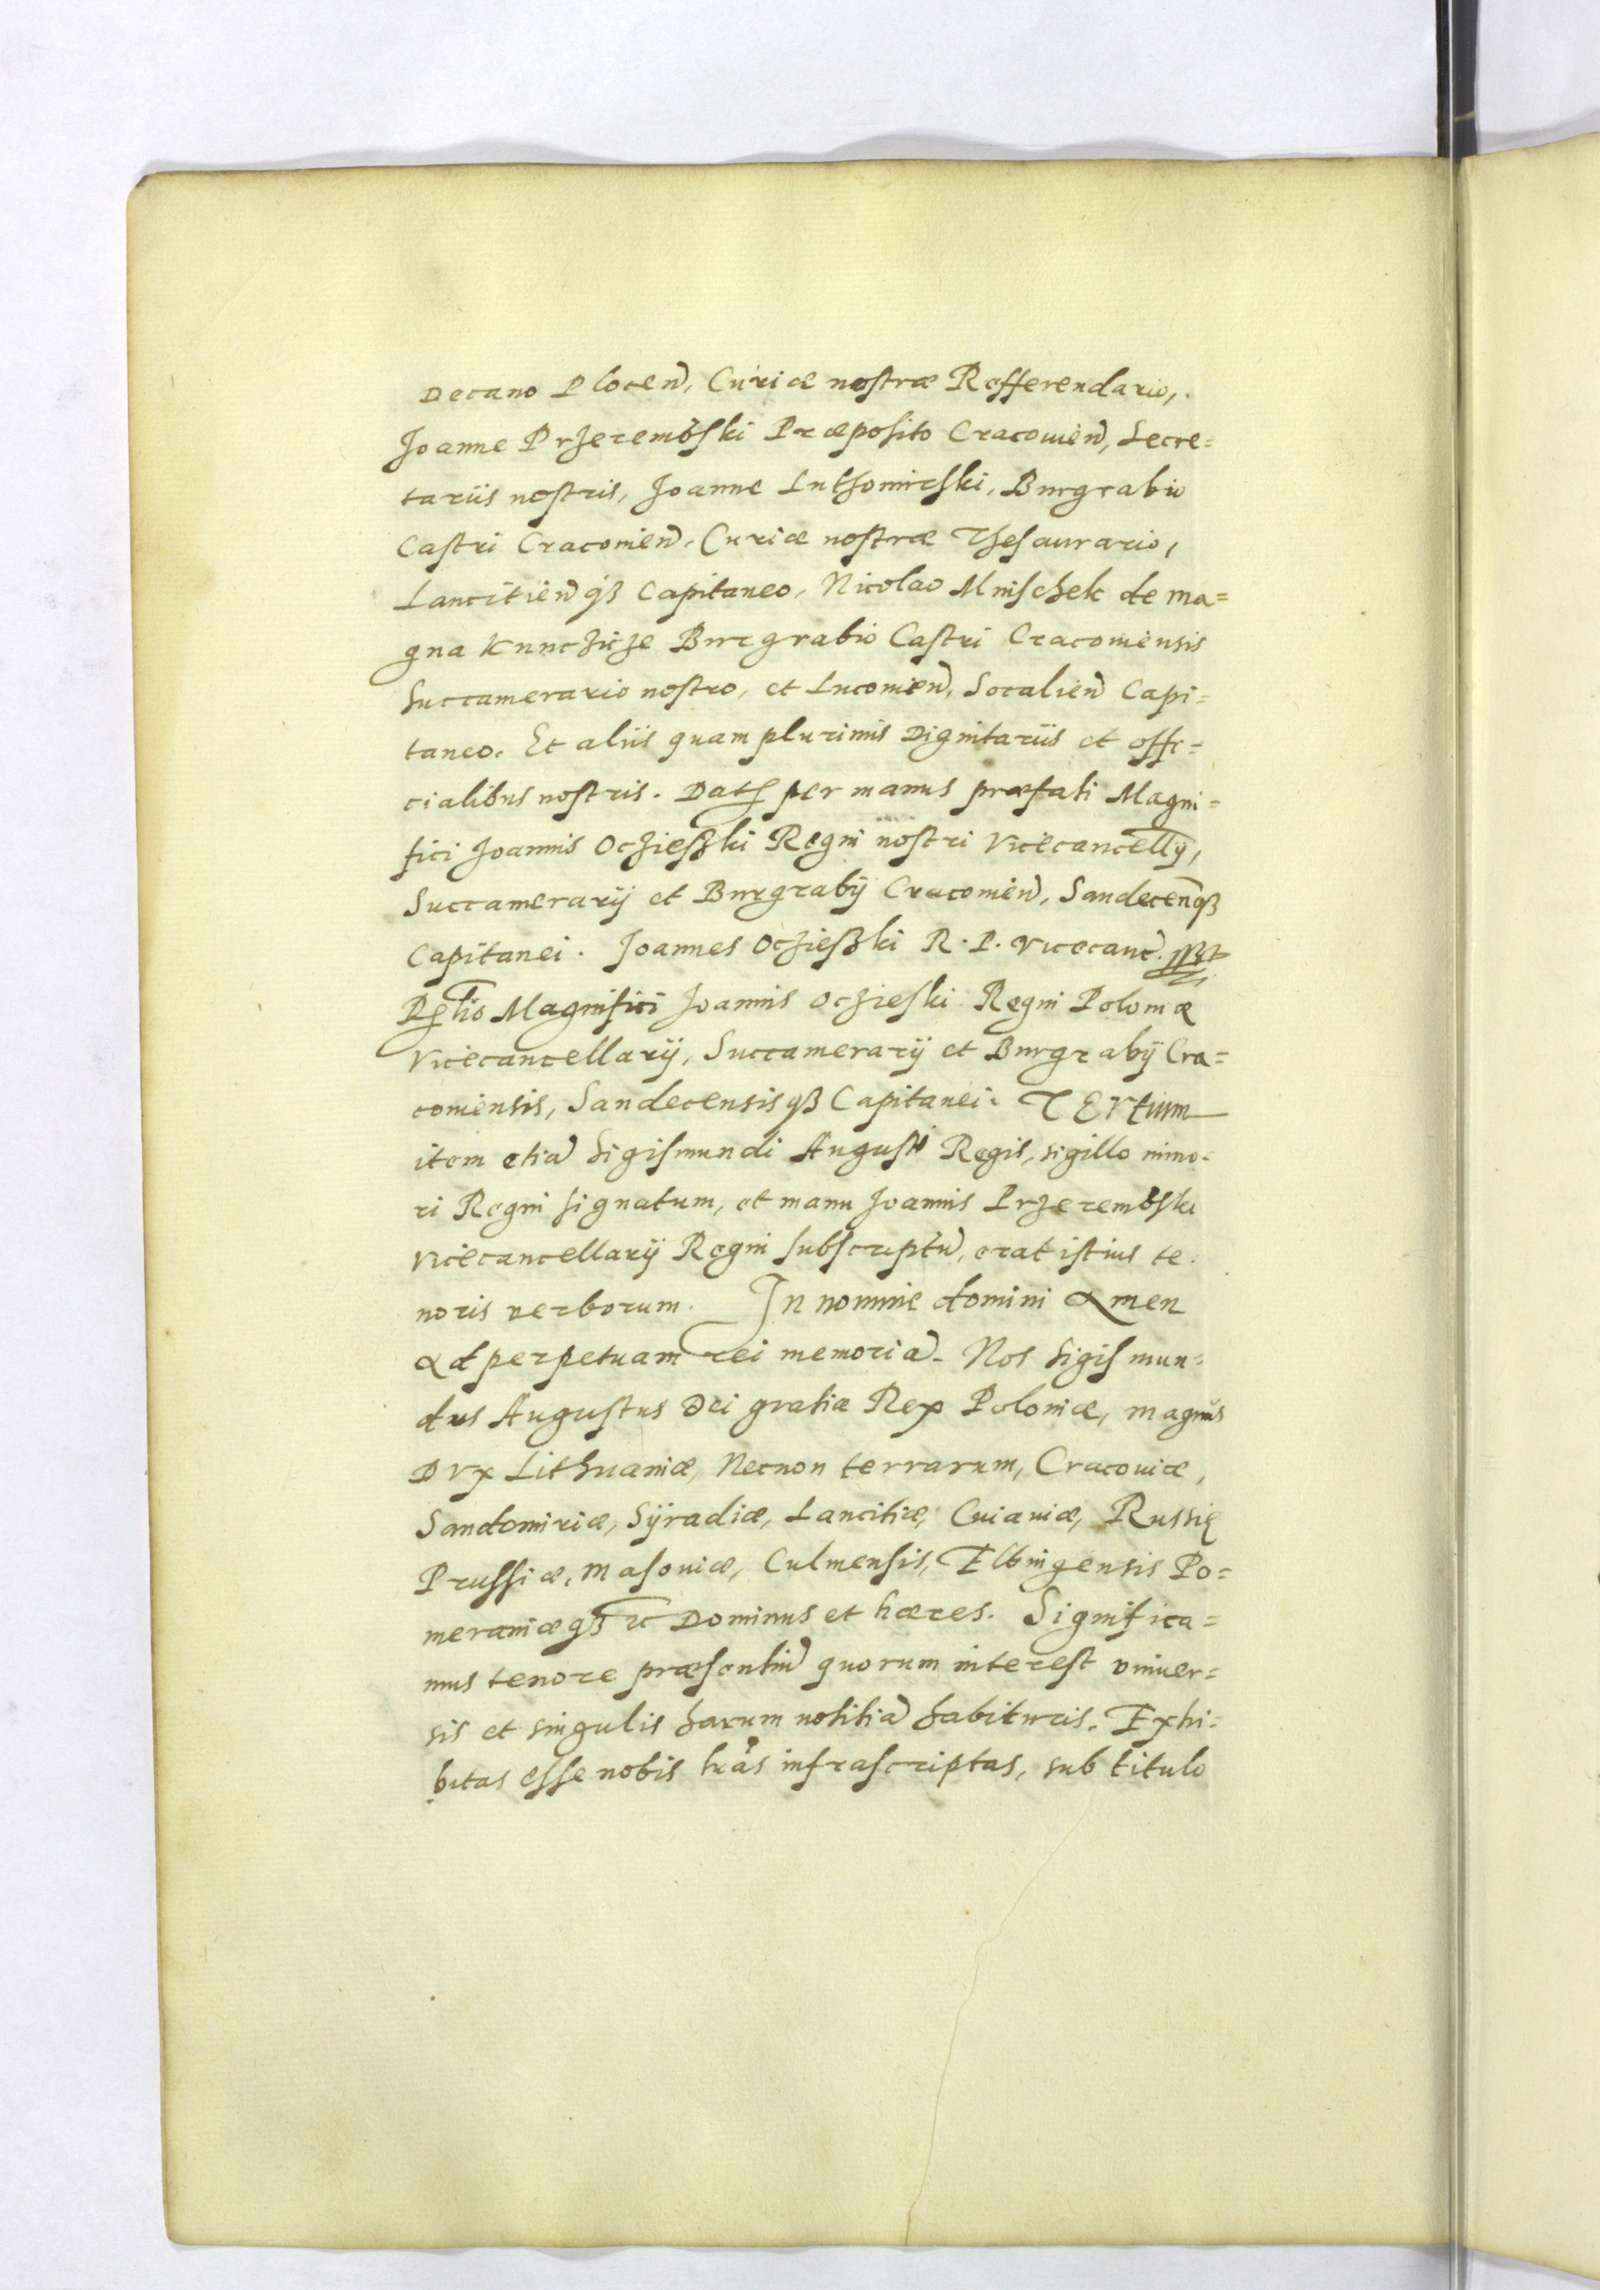 Decano Plocen̄, Curiæ nostræ Refferendario,
Joanne Przerembski Præposito Cracouien̄, Secre=
tariis nostris, Joanne Luthomirski, Burgrabio
Castri Cracouien̄. Curiæ nostræ Thesaurario,
Lancitien̄qȝ Capitaneo, Nicolao Mnischek de ma=
gna Kunczicze Burgrabio Castri Cracouiensis
Succamerario nostro, et Lucouien̄, Socalien̄ Capi=
taneo. Et aliis quam plurimis Dignitariis et offi=
cialibus nostris. Datꝭ per manus præfati Magni=
fici Joannis Oczieszki Regni nostri Vicecancellȳ,
Succamerarij et Burgrabij Cracouien̄, Sandecen̄qȝ
Capitanei. Joannes Oczieszki R. P. Vicecanc̄. sszt
Rꝭlio Magnifici Joannis Oczieski Regni Poloniæ
Vicecancellarij, Succamerarij et Burgrabij Cra=
couiensis, Sandecensisqȝ Capitanei. TErtium
item etiā Sigismundi Augusti Regis, sigillo mino-
ri Regni signatum, et manu Joannis Przerembski
Vicecancellarij Regni subscriptū, erat istius te-
noris verborum. In nomine domini Amen
Ad perpetuam rei memoriā. Nos Sigismun-
dus Augustus Dei gratia Rex Poloniæ, magnus
DVx Lithuaniæ, Necnon terrarum, Cracouiæ,
Sandomiriæ, Syradiæ, Lancitiæ, Cuiauiæ, Russię
Prussiæ, Masouiæ, Culmensis, Elbingensis Po=
meraniæqȝ ꝛc Dominus et hæres. Significa=
mus tenore præsentiū quorum interest vniuer=
sis et singulis harum notitiā habituris. Exhi=
bitas esse nobis lr̄as infrascriptas, sub titulo